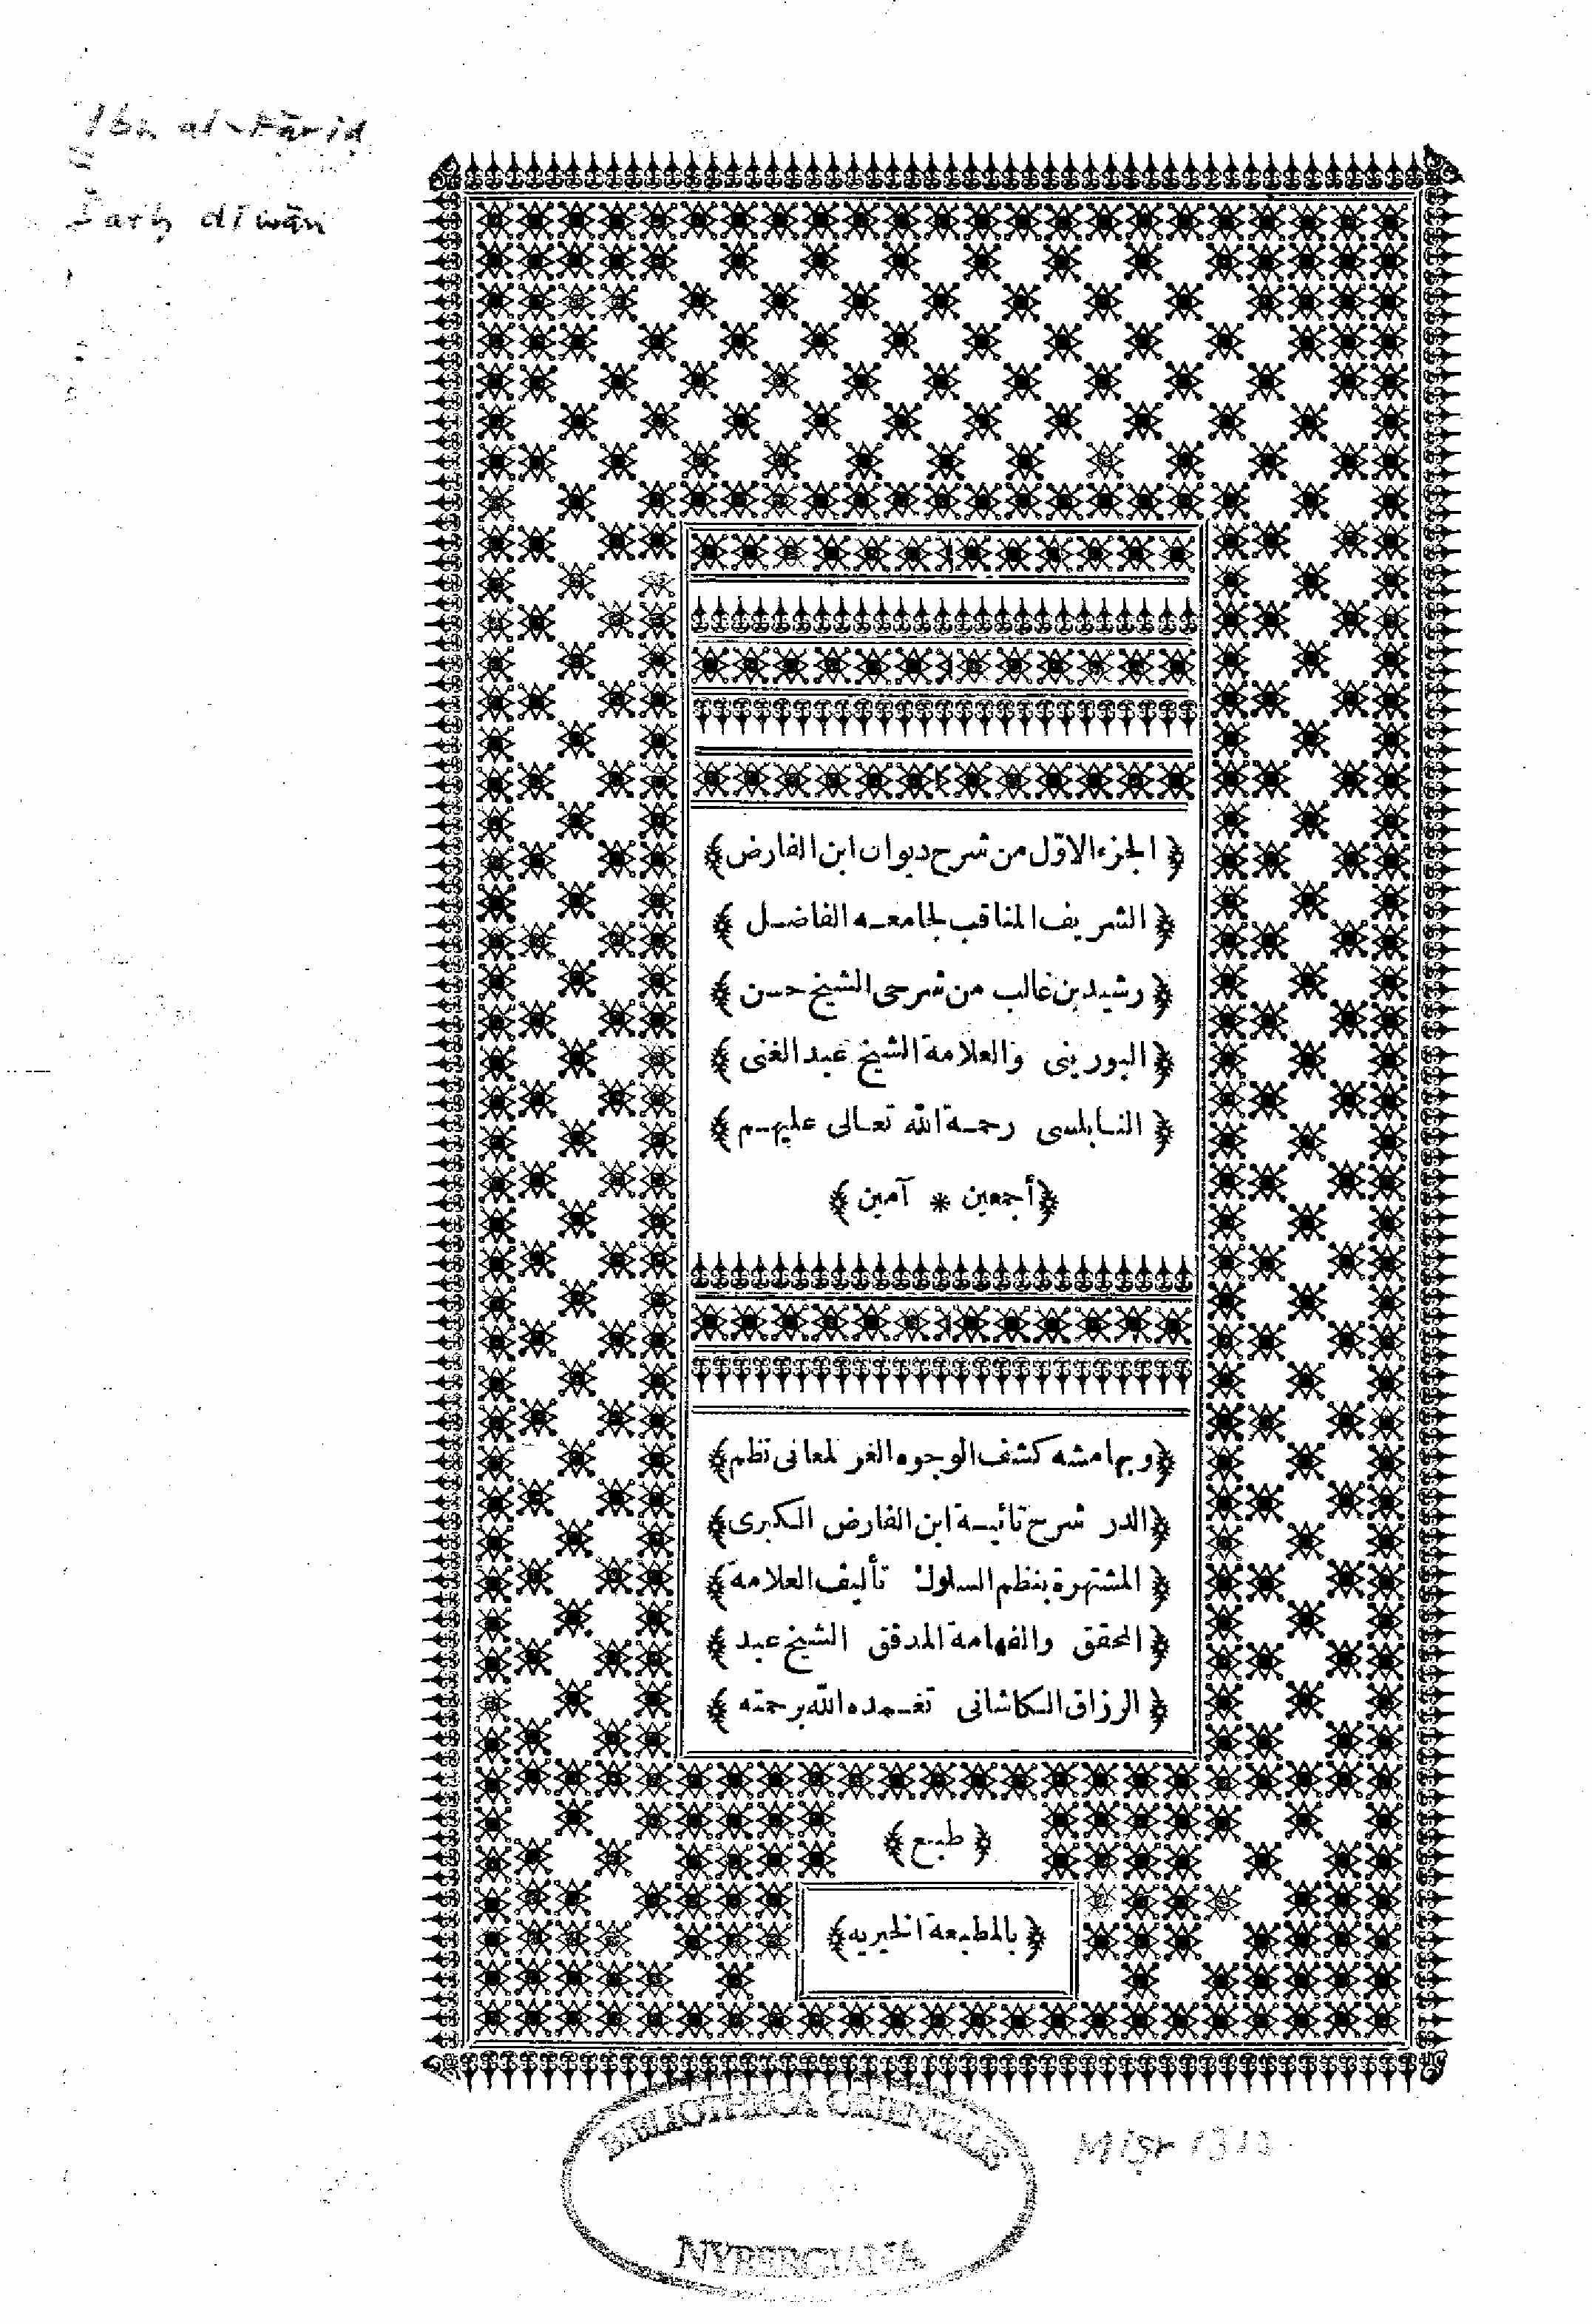 Ibn al-Fāriḍ
Šarḥ dīwān
﴿الجزء الاوّل من شرح ديوان ابن الفارض﴾
﴿الشريف المناقب لجامعه الفاضل﴾
﴿رشيد بن غالب من شرحى الشيخ حسن﴾
﴿البورينى والعلامة الشيخ عبد الغنى﴾
﴿النابلسى رحمة الله تعالى عليهم﴾
﴿أجمعين * آمين﴾
﴿وبهامشه كشف الوجوه الغر لمعانى نظم﴾
﴿الدر شرح تائية ابن الفارض الكبرى﴾
﴿المشتهرة بنظم السلوك تأليف العلامة﴾
﴿المحقق والفهامة المدقق الشيخ عبد﴾
﴿الرزاق الكاشانى تغمده الله برحمته﴾
﴿طبع﴾
﴿بالمطبعة الخيريه﴾
BIBLIOTHECA ORIENTALIS
NYBERGIANA
Miṣr 1310